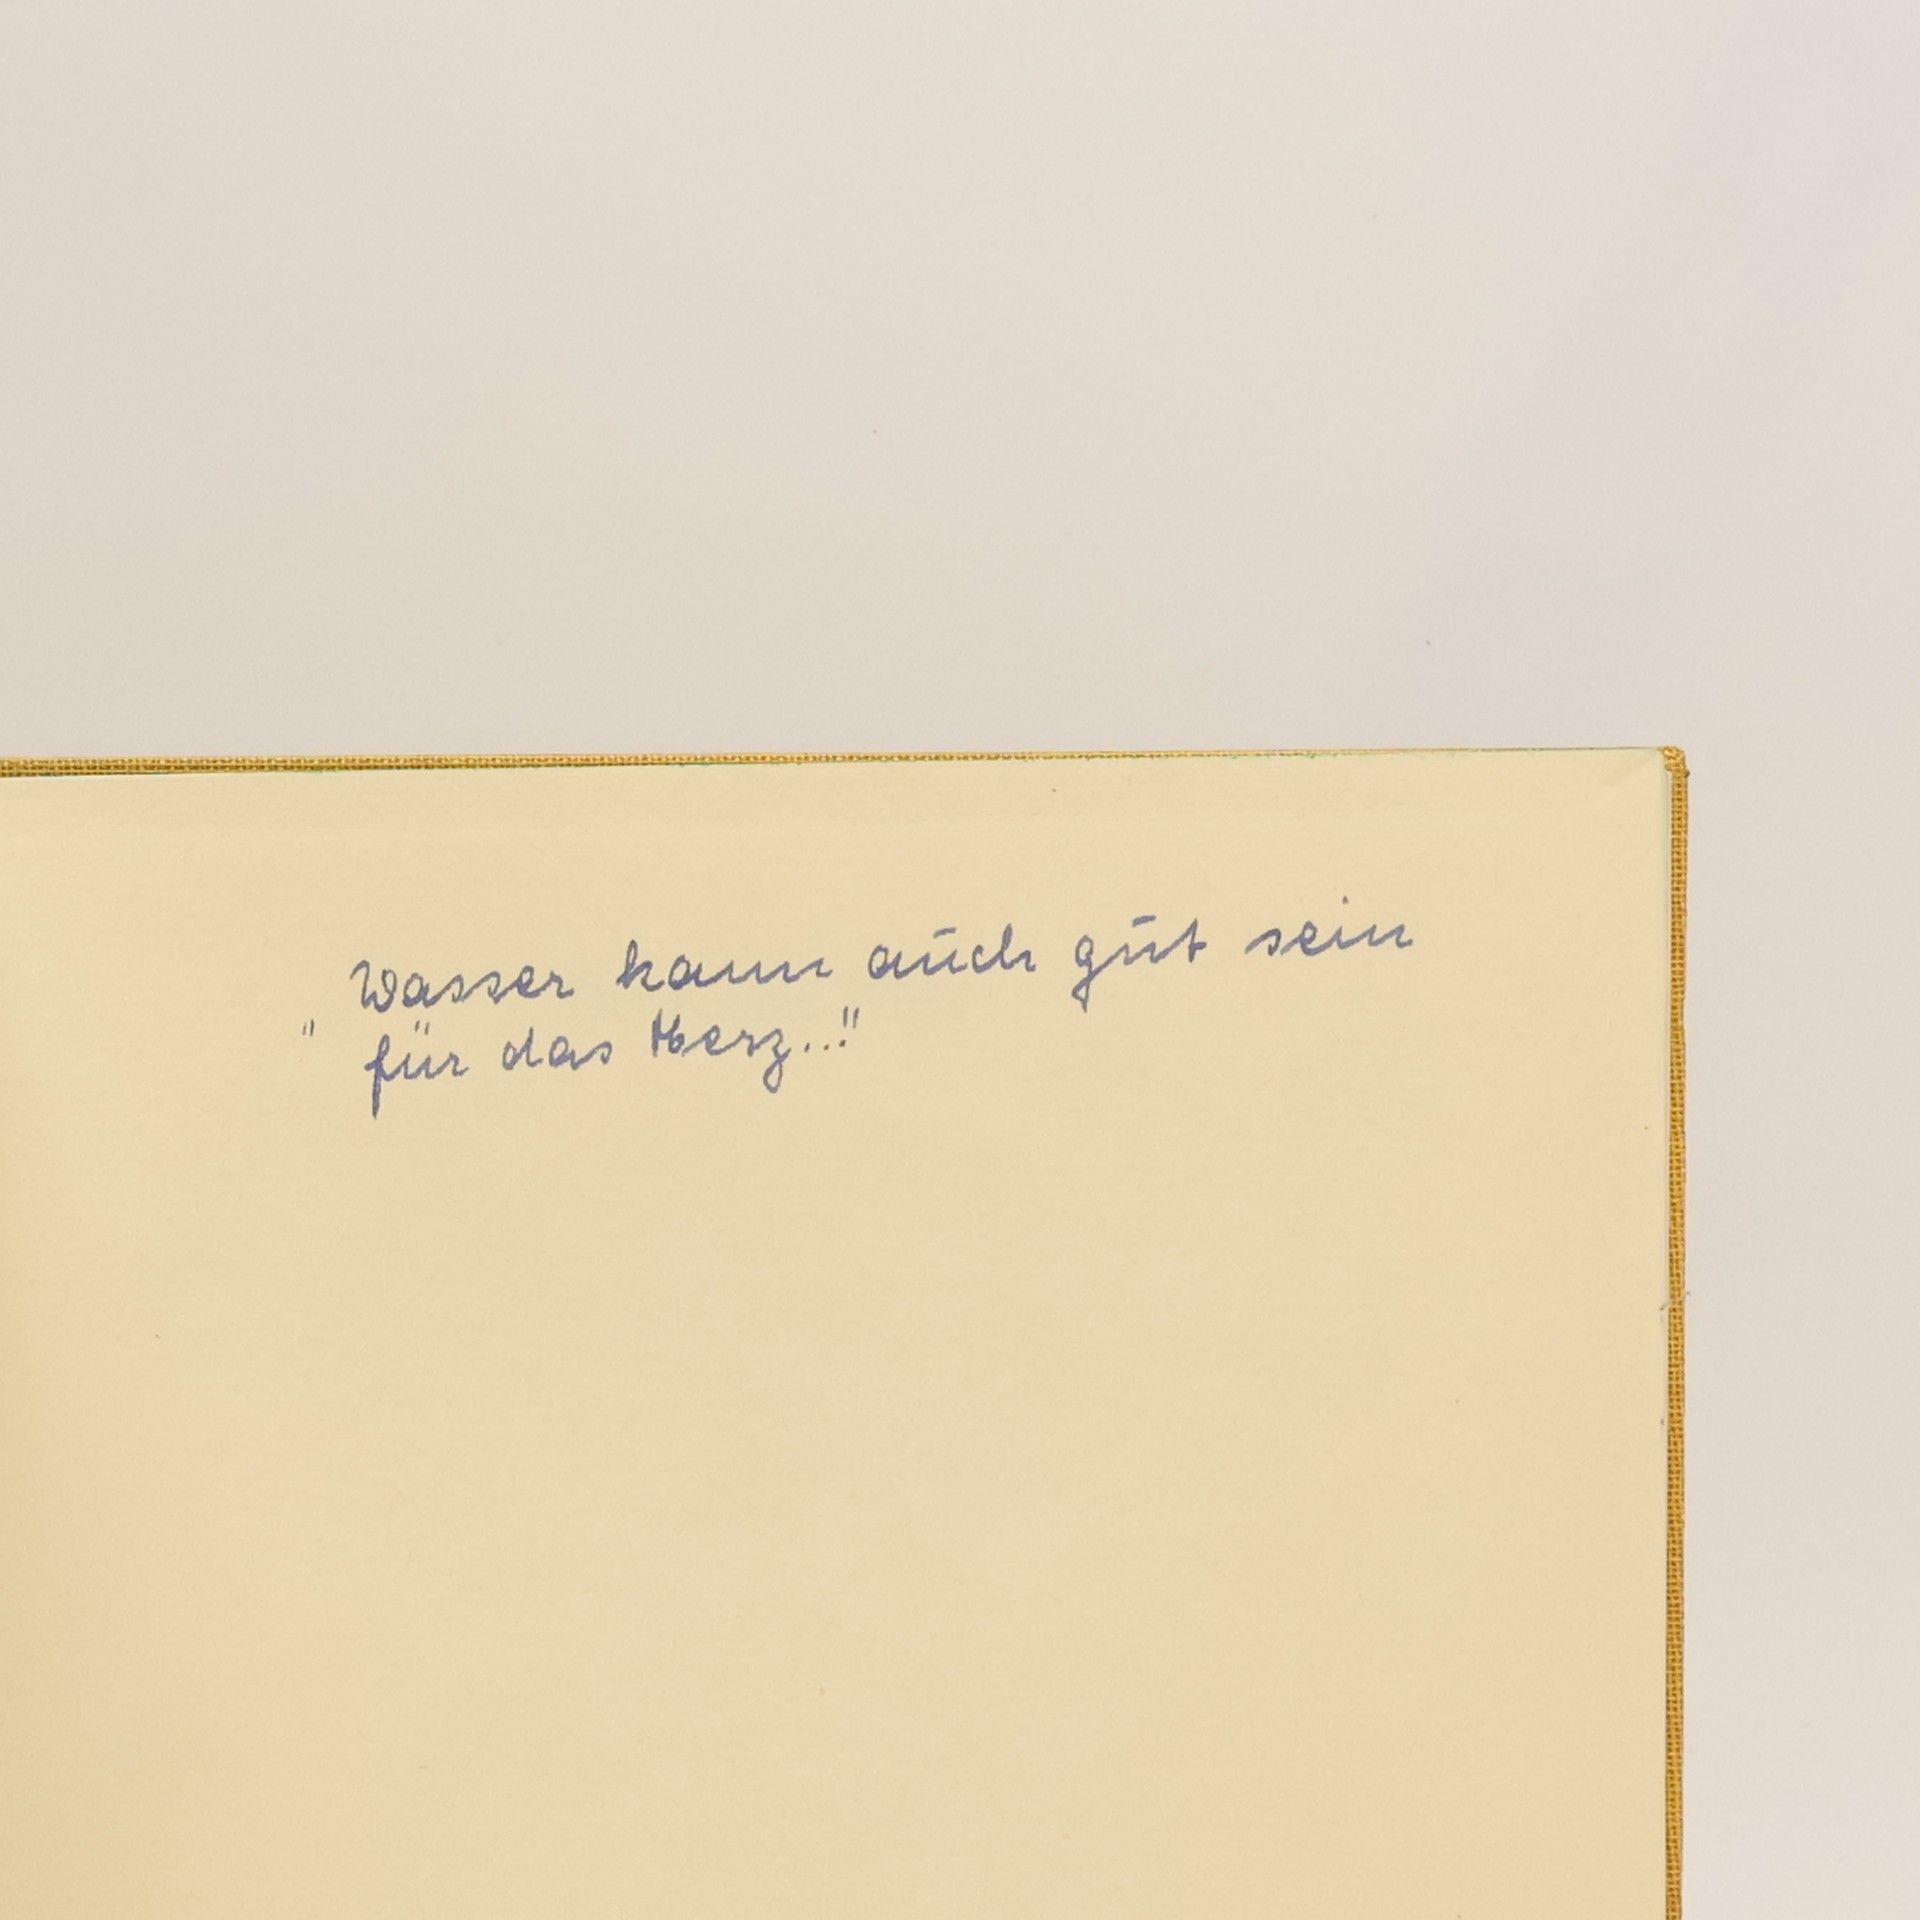 Wasser kann auch gut sein
" für das Herz..."